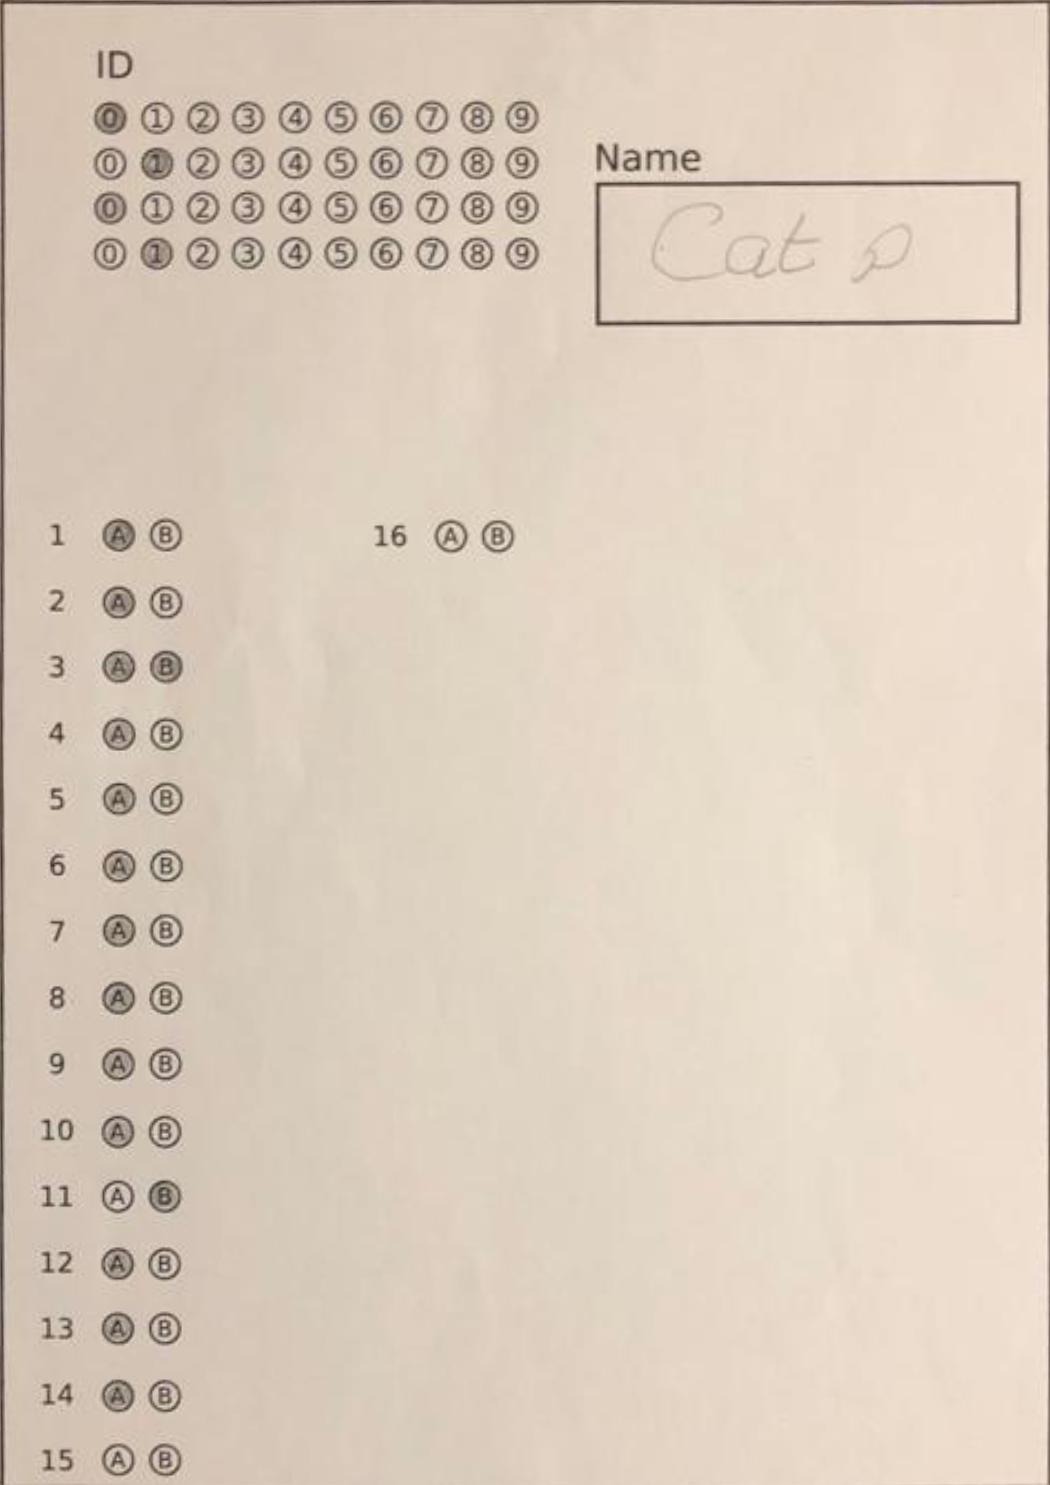 ID
0 1 2 3 4 5 6 7 8 9
0 1 2 3 4 5 6 7 8 9
0 1 2 3 4 5 6 7 8 9
0 1 2 3 4 5 6 7 8 9
Name
Cat
1 A B
2 A B
3 A B
4 A B
5 A B
6 A B
7 A B
8 A B
9 A B
10 A B
11 A B
12 A B
13 A B
14 A B
15 A B
16 A B